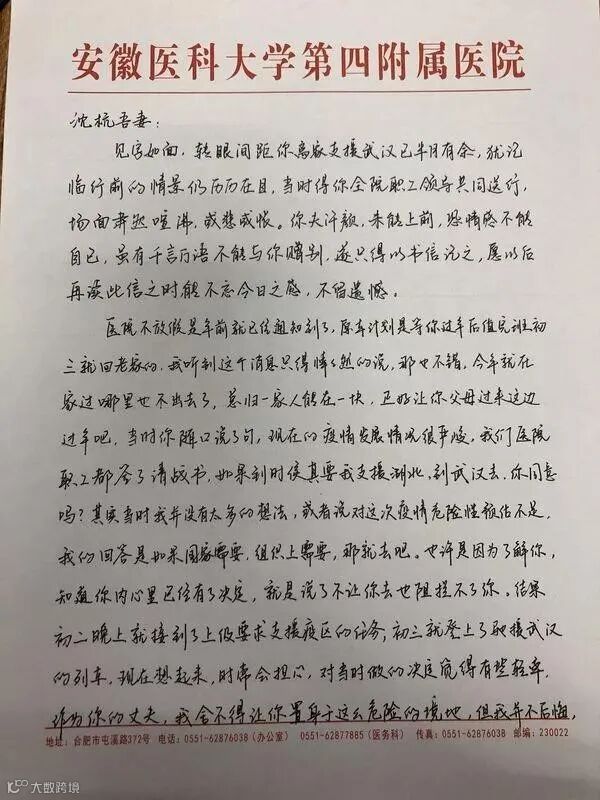 安徽医科大学第四附属医院
沈杭吾妻：
见字如面，转眼间距你离家支援武汉已半月有余，犹记
临行前的情景仍历历在目，当时得你全院职工领导共同送行，
场面肃然喧沸，或悲或恨。你夫汗颜，未能上前，恐情感不能
自已，虽有千言万语不能与你赠别，遂只得以书信记之，愿以后
再读此信之时能不忘今日之感，不留遗憾。
医院不放假是年前就已经通知到了，原来计划是等你过年后值完班初
三就回老家的，我听到这个消息只得悻悻然的说，那也不错，今年就在
家过哪里也不出去了，总归一家人能在一块，正好让你父母过来这边
过年吧，当时你随口说了句，现在的疫情发展情况很严峻，我们医院
职工都签了请战书，如果到时侯真要我支援湖北，到武汉去，你同意
吗？其实当时我并没有太多的想法，或者说对这次疫情危险性预估不足，
我的回答是如果国家需要，组织上需要，那就去吧。也许是因为了解你，
知道你内心里已经有了决定，就是说了不让你去也阻拦不了你。结果
初二晚上就接到了上级要求支援疫区的任务，初三就登上了驰援武汉
的列车，现在想起来，时常会担心，对当时做的决定觉得有些轻率，
作为你的丈夫，我舍不得让你置身于这么危险的境地，但我并不后悔，
地址：合肥市屯溪路372号 电话：0551-62876038（办公室） 0551-62877885（医务科） 传真：0551-62876038 邮编：230022
大数跨境